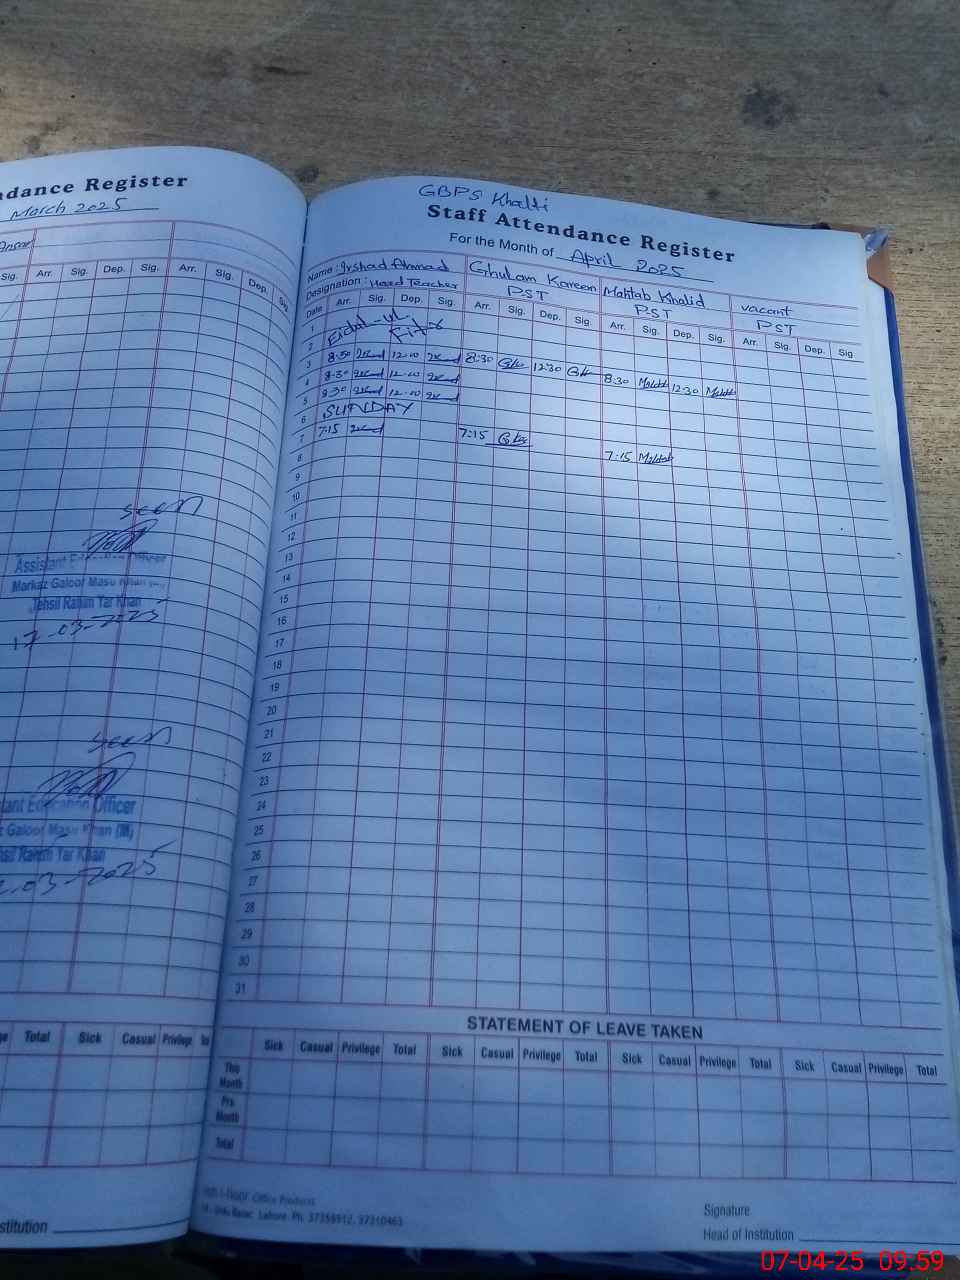 ndance Register
March 2025
Sig. Arr. Sig. Dep. Sig. Arr. Sig. Dep. Sig.
seen
Assistant Education Officer
Markaz Galoor Masu Khan
Tehsil Rahim Yar Khan
17-03-2025
seen
tant Education Officer
z Galoor Masu Khan (M)
hsil Rahim Yar Khan
03-2025
ge Total Sick Casual Privilege
stitution
GBPS Khalti
Staff Attendance Register
For the Month of April 2025
Name : Irshad Ahmad Ghulam Kareem Mahtab Khalid vacant
Designation : Head Teacher PST PST PST
Date Arr. Sig. Dep. Sig. Arr. Sig. Dep. Sig. Arr. Sig. Dep. Sig. Arr. Sig. Dep. Sig.
1 Eidul-ul
2 Fitr
3 8:30 12:00 8:30 12:30 8:30 Mahtab 12:30 Mahtab
4 8:30 12:00
5 8:30 12:00
6 SUNDAY
7 7:15 7:15 7:15 Mahtab
8
9
10
11
12
13
14
15
16
17
18
19
20
21
22
23
24
25
26
27
28
29
30
31
STATEMENT OF LEAVE TAKEN
Sick Casual Privilege Total Sick Casual Privilege Total Sick Casual Privilege Total Sick Casual Privilege Total
This Month
Pre Month
Total
Office Products
Urdu Bazar, Lahore. Ph. 37358912, 37310463
Signature
Head of Institution
07-04-25 09.59